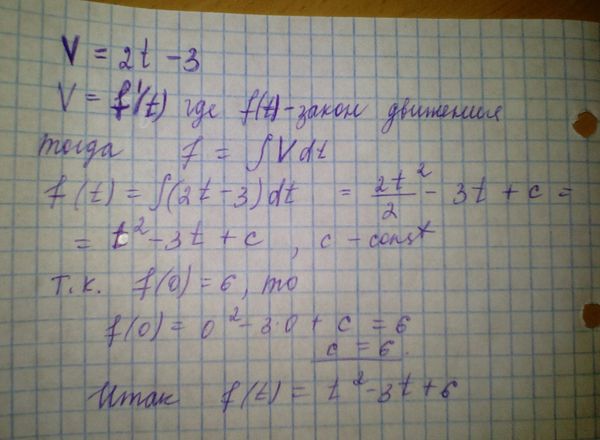 V = 2t - 3
V = f'(t) где f(t) - закон движения
тогда f = ∫ V dt
f(t) = ∫(2t - 3)dt = 2t²/2 - 3t + c =
= t² - 3t + c , c - const
т.к. f(0) = 6, то
f(0) = 0² - 3·0 + c = 6
c = 6.
Итак f(t) = t² - 3t + 6